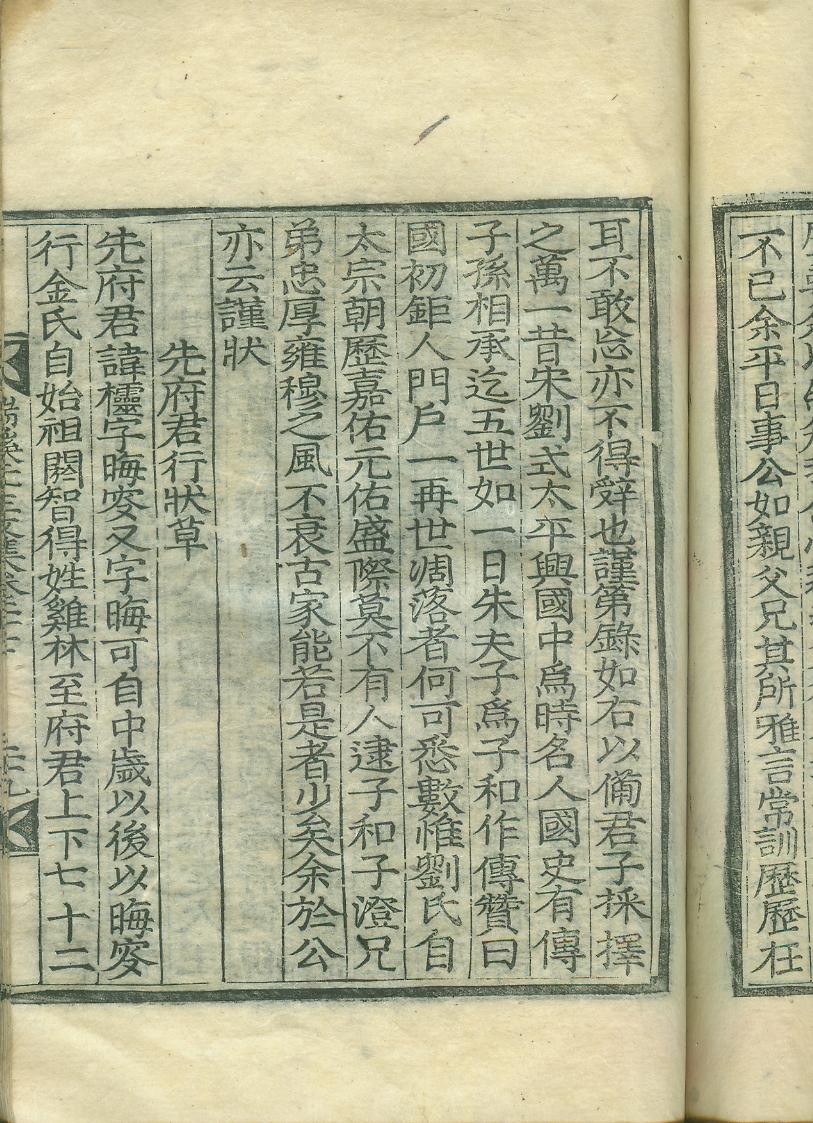 不已余平日事公如親父兄其所雅言常訓歷歷在
耳不敢忘亦不得辝也謹第錄如右以備君子採擇
之萬一昔宋劉式太平興國中爲時名人國史有傳
子孫相承迄五世如一日朱夫子爲子和作傳贊曰
國初鉅人門戶一再世凋落者何可悉數惟劉氏自
太宗朝歷嘉佑元佑盛際莫不有人逮子和子澄兄
弟忠厚雍穆之風不衰古家能若是者少矣余於公
亦云謹狀
先府君行狀草
先府君諱欞字晦窔又字晦可自中歲以後以晦窔
行金氏自始祖閼智得姓雞林至府君上下七十二